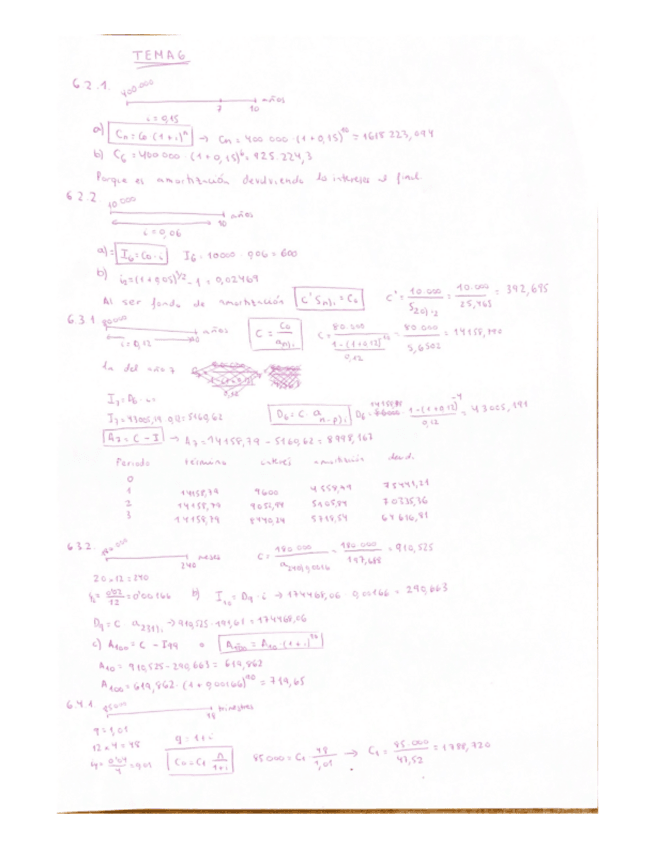 TEMA 6
6.2.1. 400.000
7 10 años
i = 0,15
a) Cn = C0 · (1+i)^n → Cn = 400 000 · (1+0,15)^10 = 1618 223,094
b) C6 = 400.000 · (1+0,15)^6 = 925.224,3
Porque es amortización devolviendo lo intereses al final.
6.2.2 10.000
años
10
i = 0,06
a) = I6 = C0 · i I6 = 10000 · 0,06 = 600
b) i2 = (1+0,05)^1/2 - 1 = 0,02469
Al ser fondo de amortización C' Sn|i = C0 C' = 10.000 / S20|i2 = 10.000 / 25,465 = 392,695
6.3.1 80000
años
i = 0,12 10
C = C0 / an|i C = 80.000 / (1-(1+0,12)^-10 / 0,12) = 80.000 / 5,6502 = 14158,790
1a del año 7
I7 = D6 · i
I7 = 43005,19 · 0,12 = 5160,62 D6 = C · a n-p|i D6 = 14158,79 · 1-(1+0,12)^-4 / 0,12 = 43005,191
A7 = C - I → A7 = 14158,79 - 5160,62 = 8998,167
Periodo término interés amortización deud.
0
1 14158,79 9600 4558,79 75441,21
2 14158,79 9052,94 5105,84 70335,36
3 14158,79 8440,24 5718,54 64616,81
6.3.2. 180.000
meses
240
C = 180.000 / a240|0,00166 = 180.000 / 197,688 = 910,525
20 · 12 = 240
= 0'02 / 12 = 0'00166 b) I10 = D9 · i → 174468,06 · 0,00166 = 290,663
D9 = C · a 231|i → 910,525 · 191,61 = 174468,06
c) A100 = C - I99 o A100 = A10 · (1+i)^90
A10 = 910,525 - 290,663 = 619,862
A100 = 619,862 · (1+0,00166)^90 = 719,65
6.4.1 85000
trimestres
48
q = 1,01
12 × 4 = 48 q = 1+i
i4 = 0'04 / 4 = 0,01 C0 = C1 n / 1+i 85000 = C1 48 / 1,01 → C1 = 85.000 / 47,52 = 1788,720